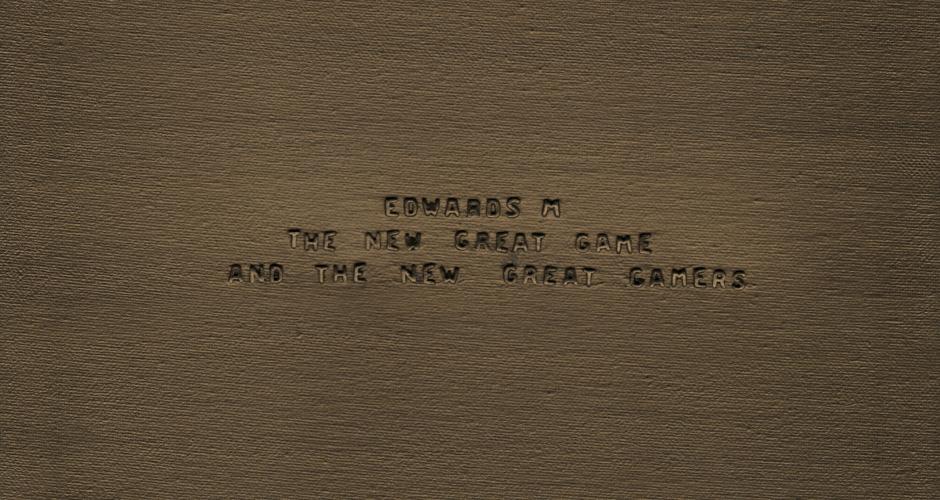 EDWARDS M
THE NEW GREAT GAME
AND THE NEW GREAT GAMERS